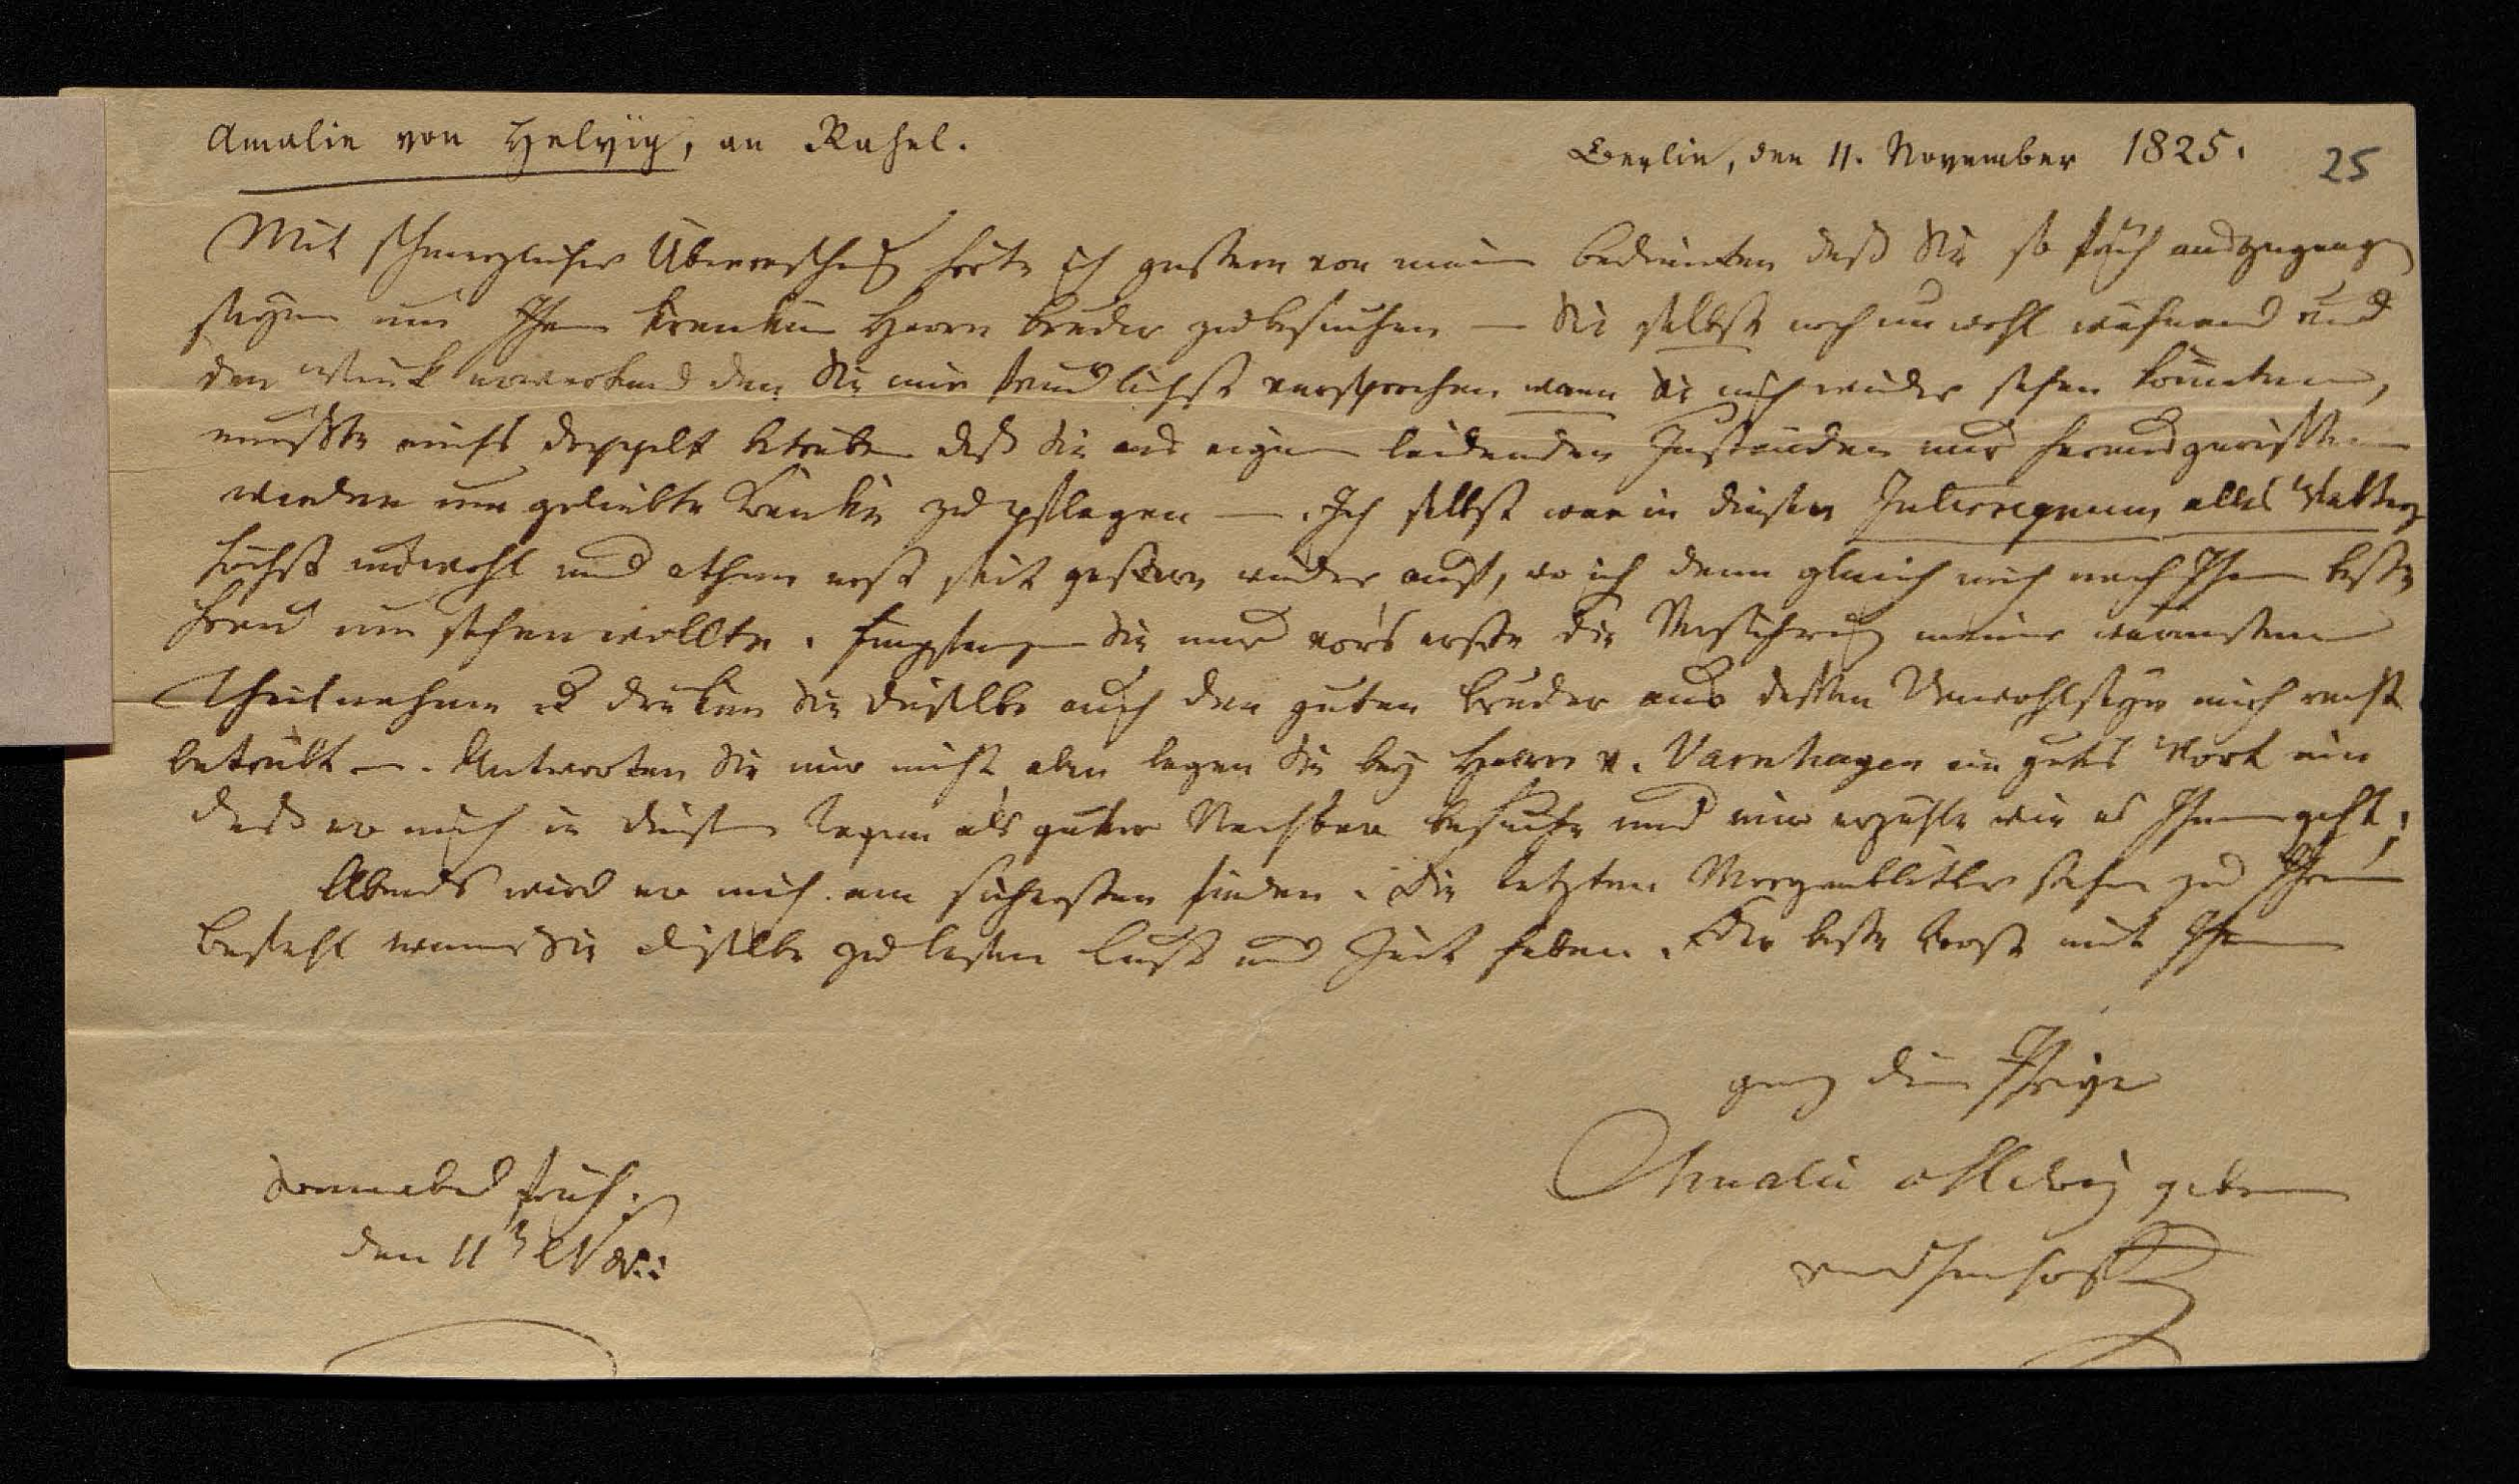 Amalie von Helvig, an Rahel.
Berlin, den 11. November 1825.
25
Mit schmerzlicher Überraschung hörte ich gestern von meinem bedienten daß Sie so früh ausgegangen
seyen um Ihren kranken Herrn Bruder zu besuchen — Sie selbst noch unwohl wissend und
den Wink erwartend den Sie mir freundlichst versprochen wann Sie mich wieder sehen könnten,
mußte michs doppelt betrüben daß Sie aus eignen leidenden Zuständen nur herausgerissen
werden um geliebte Kranke zu pflegen — . Ich selbst war in diesem Interregnum alles Wetters
höchst unwohl und athme erst seit gestern wieder auf, wo ich denn gleich mich nach Ihnen beste
Freundin umsehen wollte. Empfangen Sie nur vors erste die Versicherung meiner wärmsten
Theilnahme u drüken Sie dieselbe auch dem guten Bruder aus dessen Unwohlseyn mich recht
betrübt — . Antworten Sie mir nicht aber legen Sie bey Herrn v. Varnhagen ein gutes Wort ein
daß er mich in diesen Tagen als guter Nachbar besuche und mir erzähle wie es Ihnen geht;
Abends wird er mich am sichersten finden. Die letzten Morgenblätter stehen zu Ihrem
Befehl wenn Sie dieselbe zu lesen Lust und Zeit haben. Der beste Trost mit Ihnen
ganz die Ihrige
Amalie v Helvig geborne
v Imhoff
Sonnabend früh.
den 11t Nov: